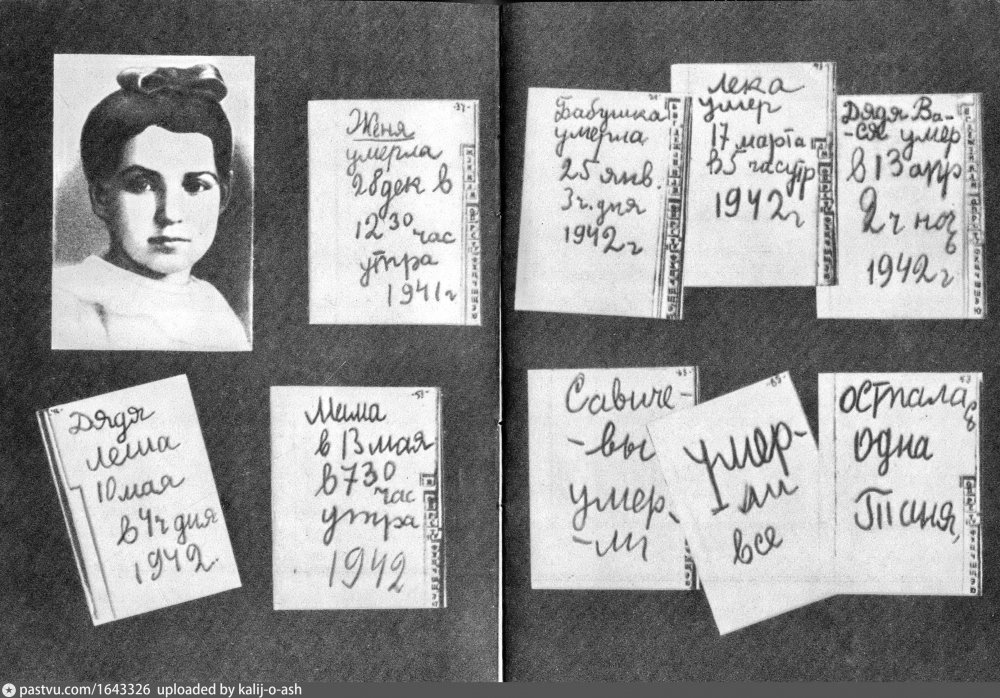 Женя
умерла
28 дек в
12 30 час
утра
1941 г
Бабушка
умерла
25 янв.
3 ч. дня
1942 г
Лека
умер
17 марта
в 5 час утр
1942 г
Дядя Ва-
-ся умер
в 13 апр
2 ч ноч
ь
1942 г
Дядя
Леша
10 мая
в 4 ч дня
1942
Мама
в 13 мая
в 7 30
час
утра
1942
Савиче-
-вы
умер-
-ли
умер-
ли
все
осталас
ь
одна
Таня,
pastvu.com/1643326 uploaded by kalij-o-ash